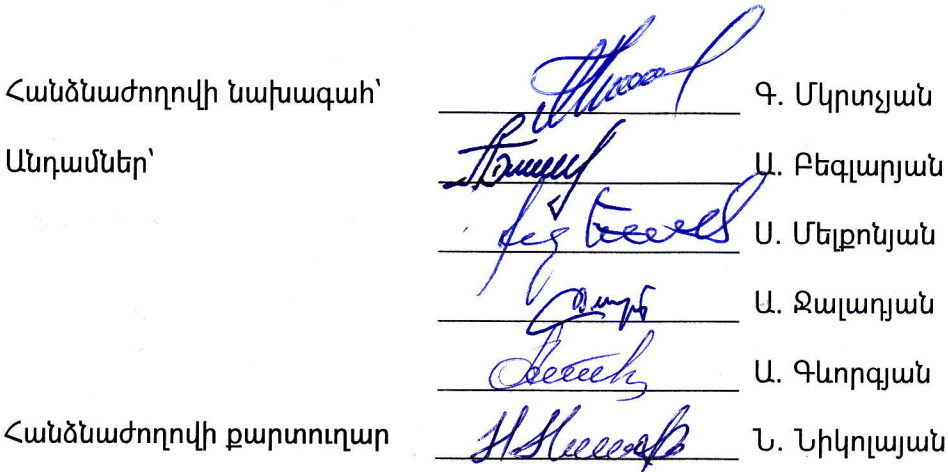 Հանձնաժողովի նախագահ՝ Գ. Մկրտչյան
Անդամներ՝ Ա. Բեգլարյան
Ս. Մելքոնյան
Ա. Ջալադյան
Ա. Գևորգյան
Հանձնաժողովի քարտուղար Ն. Նիկոլայան